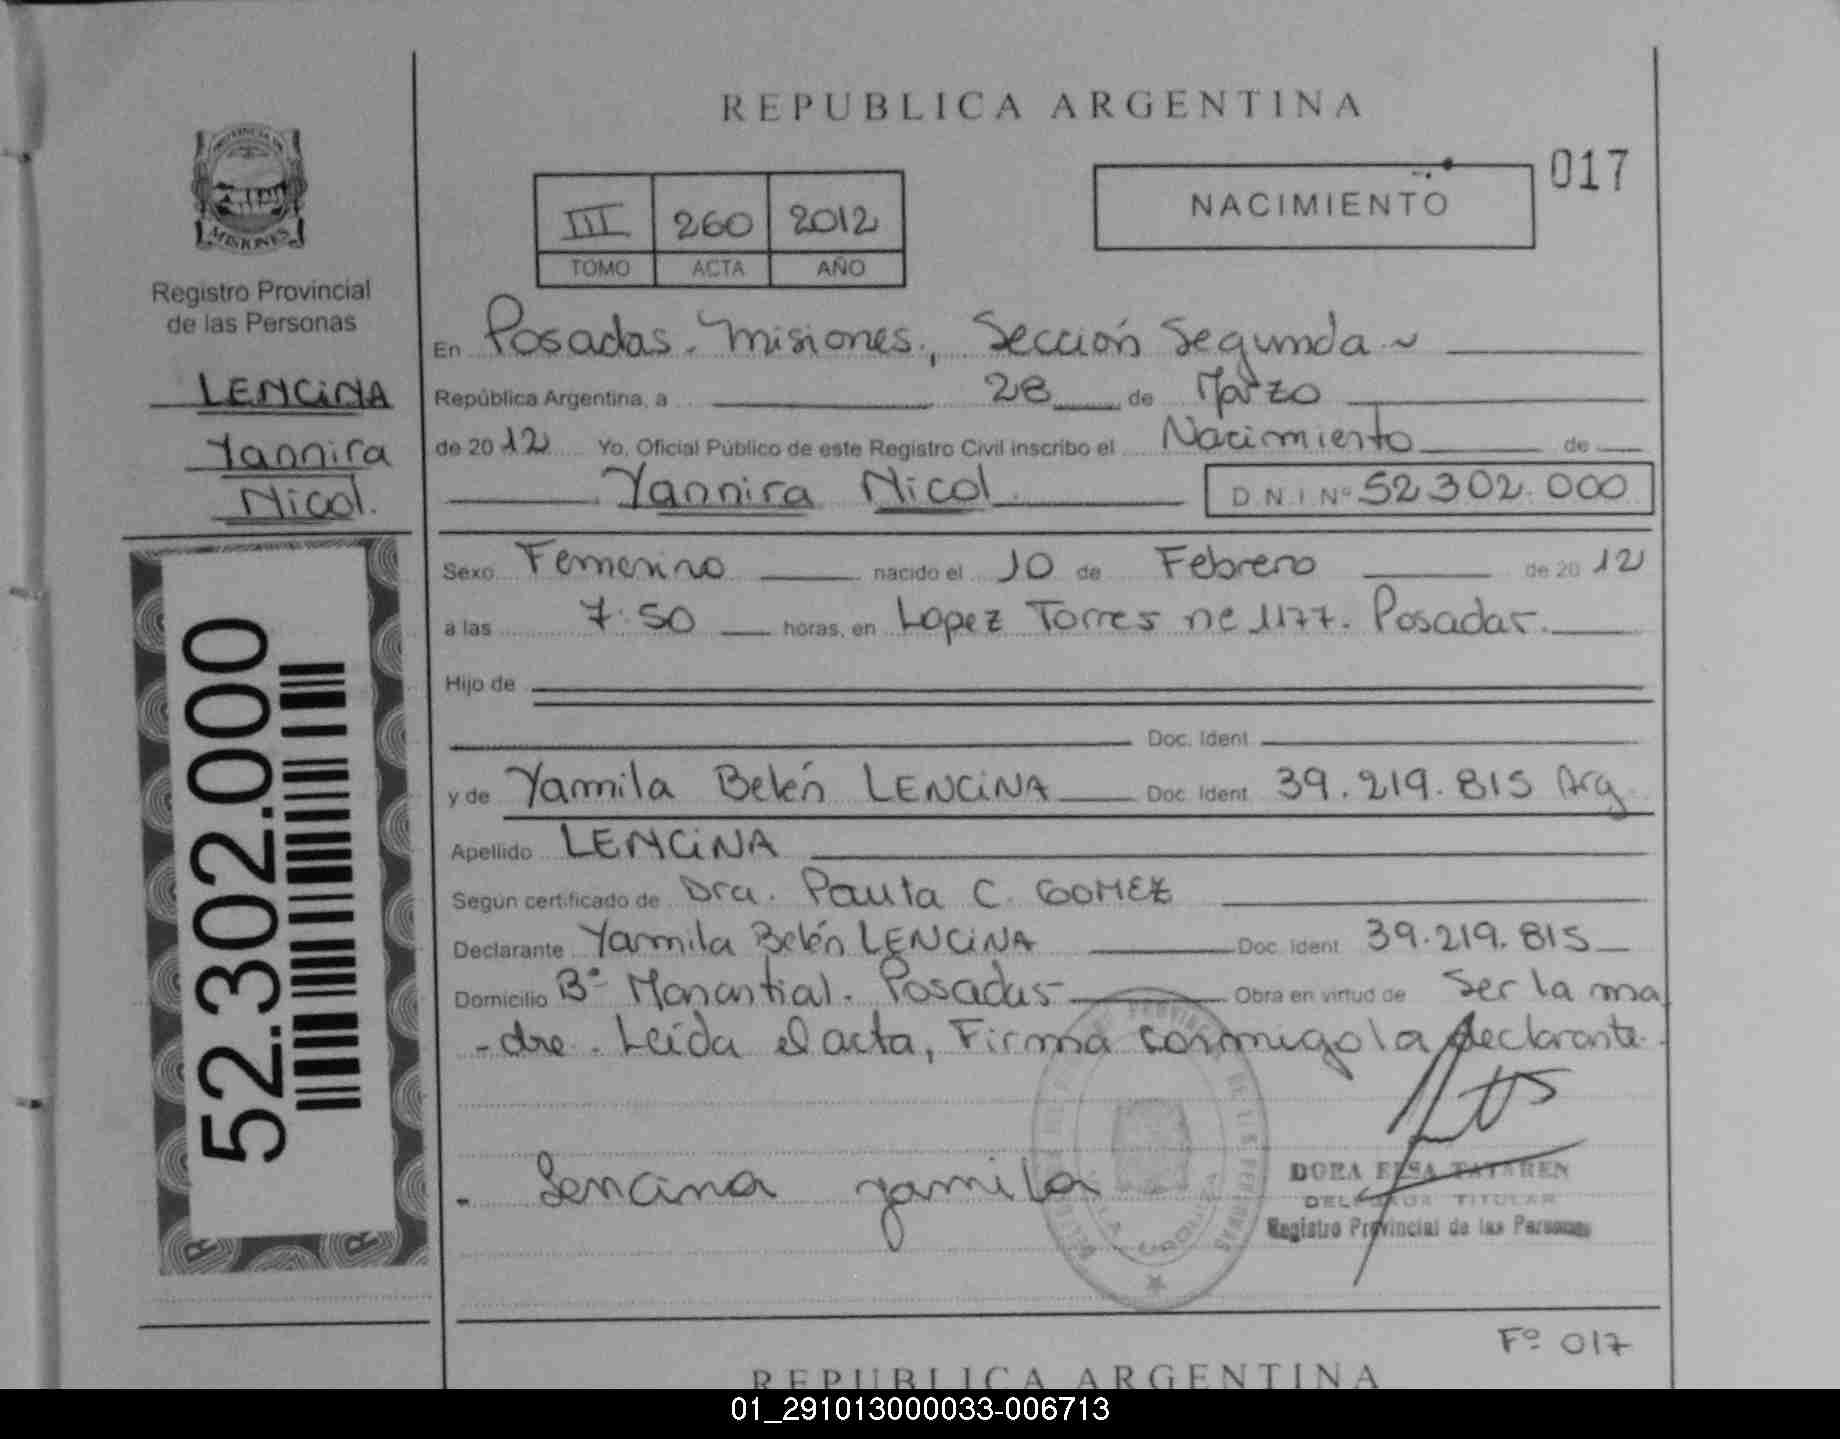 REPUBLICA ARGENTINA
017
NACIMIENTO
III 260 2012
TOMO ACTA AÑO
PROVINCIA DE
MISIONES
Registro Provincial
de las Personas
LENCiNA
Yannira
Nicol.
52.302.000
En Posadas. Misiones., Sección Segunda
República Argentina, a 28 de Marzo
de 2012 Yo, Oficial Público de este Registro Civil inscribo el Nacimiento de
Yannira Nicol. D.N.I. Nº 52.302.000
Sexo Femenino nacido el 10 de Febrero de 2012
a las 7.50 horas, en Lopez Torres nº 1177. Posadas.
Hijo de
Doc. Ident.
y de Yamila Belén LENCiNA Doc. Ident. 39.219.815 Arg.
Apellido LENCiNA
Según certificado de Dra. Paula C. GOMEZ
Declarante Yamila Belén LENCiNA Doc. Ident. 39.219.815
Domicilio Bº Manantial. Posadas Obra en virtud de Ser la ma
-dre. Leida el acta, Firma conmigo la declarante.
Lencina yamila
DORA ELSA
DELEGADA TITULAR
Registro Provincial de las Personas
Fº 017
REPUBLICA ARGENTINA
01_291013000033-006713